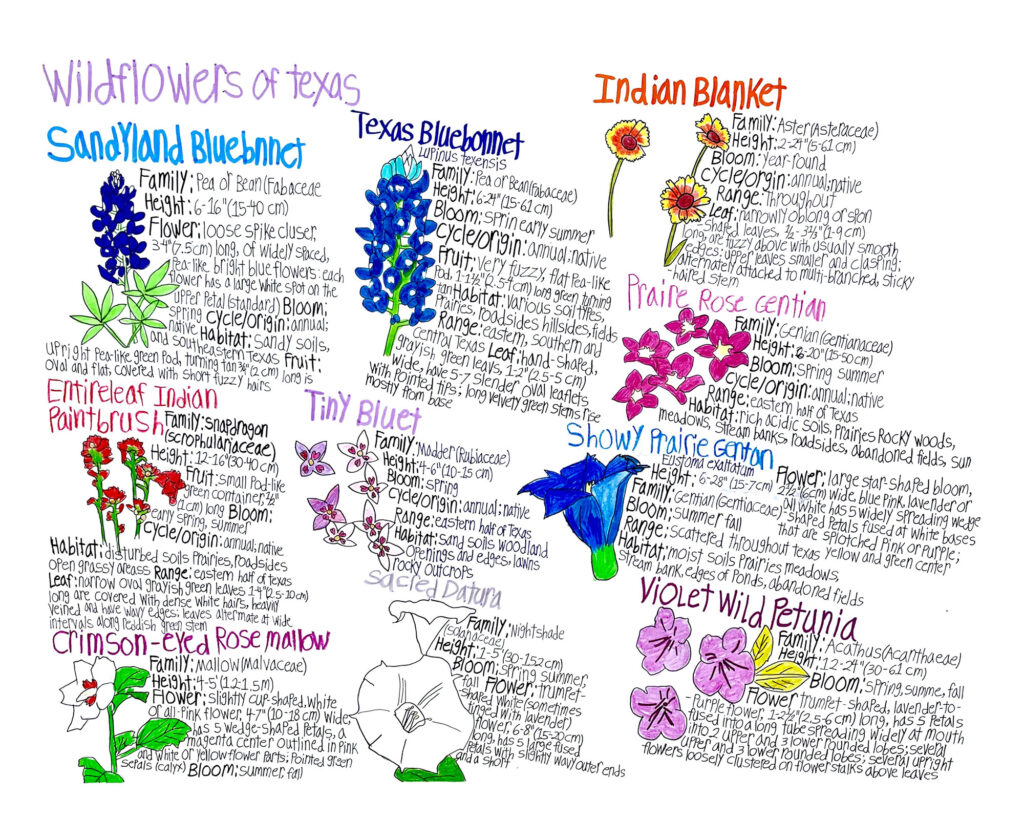 Wildflowers of texas
Sandyland Bluebnnet
Family: Pea or Bean(Fabaceae
Height: 6-16"(15-40 cm)
Flower: loose spike cluser,
3-4"(7.5cm) long, of widely spaced,
Pea-like bright blue flowers: each
flower has a large white spot on the
upper Petal (standard) Bloom:
spring cycle/origin: annual;
native Habitat: Sandy soils,
and southeastern Texas Fruit:
upright Pea-like green Pod, turning tan ¾"(2 cm) long is
oval and flat, covered with short fuzzy hairs
Texas Bluebonnet
Lupinus texensis
Family: Pea or Bean(Fabaceae)
Height: 6-24"(15-61 cm)
Bloom: sprin early summer
Cycle/origin: annual: native
Fruit: Very fuzzy, flat Pea-like
Pod, 1-1½"(2.5-4 cm) long green turning
tan Habitat: Various soil tires,
Prairies, roadsides hillsides, fields
Range: eastern, southern and
central Texas Leaf: hand-shaped,
grayish green leaves, 1-2"(2.5-5 cm)
wide, have 5-7 slender oval leaflets
with Pointed tips; long velvety green stems rise
mostly from base
Indian Blanket
Family: Aster(Asteraceae)
Height: 2-24"(5-61 cm)
Bloom: Year-round
cycle/origin: annual;native
Range: Throughout
Leaf: narrowly oblong of spon
shaped leaves, ¾-3½"(1-9 cm)
long are fuzzy above with usually smooth
edges: upper leaves smaller and clasping;
alternately attacked to multi-branched, sticky
-haired stem
Prairie Rose Gentian
Family: Genian(Gentianaceae)
Height: 6-20"(15-50cm)
Bloom: Spring summer
Cycle/origin: annual; native
Range: eastern half of Texas
Habitat: rich acidic soils, Prairies Rocky woods,
meadows, stream banks, roadsides, abandoned fields, sun
Entireleaf Indian
Paintbrush Family: snapdragon
(scrophulariaceae)
Height: 12-16"(30-40 cm)
Fruit: small Pod-like
green container, ½"
(1 cm) long Bloom:
early spring, summer
cycle/origin: annual; native
Habitat: disturbed soils Prairies, roadsides
open grassy areass Range: eastern half of texas
Leaf: narrow oval grayish green leaves 1-4"(2.5-10cm)
long are covered with dense white hairs, heavily
veined and have wavy edges; leaves altermate at wide
intervals along reddish green stem
Tiny Bluet
Family: Madder(Rubiaceae)
Height: 4-6"(10-15 cm)
Bloom: spring
cycle/origin: annual; native
Range: eastern half of Texas
Habitat: Sand soils woodland
openings and edges, lawns
rocky outcrops
Showy Prairie Gentan
Eustoma exaltatum
Height: 6-28"(15-7cm)
Family: Gentian(Gentiaceae)
Bloom: summer fall
Range: scattered throughout texas
Habitat: moist soils Prairies meadows,
stream bank, edges of Ponds, abandoned fields
Flower: large star-shaped bloom,
2½"(6cm wide, blue Pink, lavender or
all white has 5 widely spreading wedge
shaped Petals fused at white bases
that are splotched Pink or Purple;
yellow and green center
Crimson-eyed Rose mallow
Family: Mallow(Malvaceae)
Height: 4-5'(1.2-1.5m)
Flower: slightly cup shaped, white
or all-Pink flower, 4-7"(10-18 cm) wide,
has 5 wedge-shaped Petals, a
magenta center outlined in Pink
and white or Yellow flower Parts; Pointed green
sepals (calyx) Bloom: summer, fall
Sacred Datura
Family: Nightshade
(solanaceae)
Height: 1-5'(30-152cm)
Bloom: Spring summer,
fall Flower: trumpet-
shaped white (sometimes
tinged with lavender)
flower, 6-8"(15-20cm)
long, has 5 large fused
Petals with slightly wavy outer ends
and a short
Violet Wild Petunia
Family: Acathus(Acanthaeae)
Height: 12-24"(30-61 cm)
Bloom: Spring, summe, fall
Flower trumpet-shaped, lavender-to-
-Purple flower, 1-2½"(2.5-6 cm) long, has 5 Petals
fused into a long tube spreading widely at mouth
into 2 upper and 3 lower rounded lobes; several
upper and 3 lower, rounded lobes; several upright
flowers loosely clustered on flower stalks above leaves